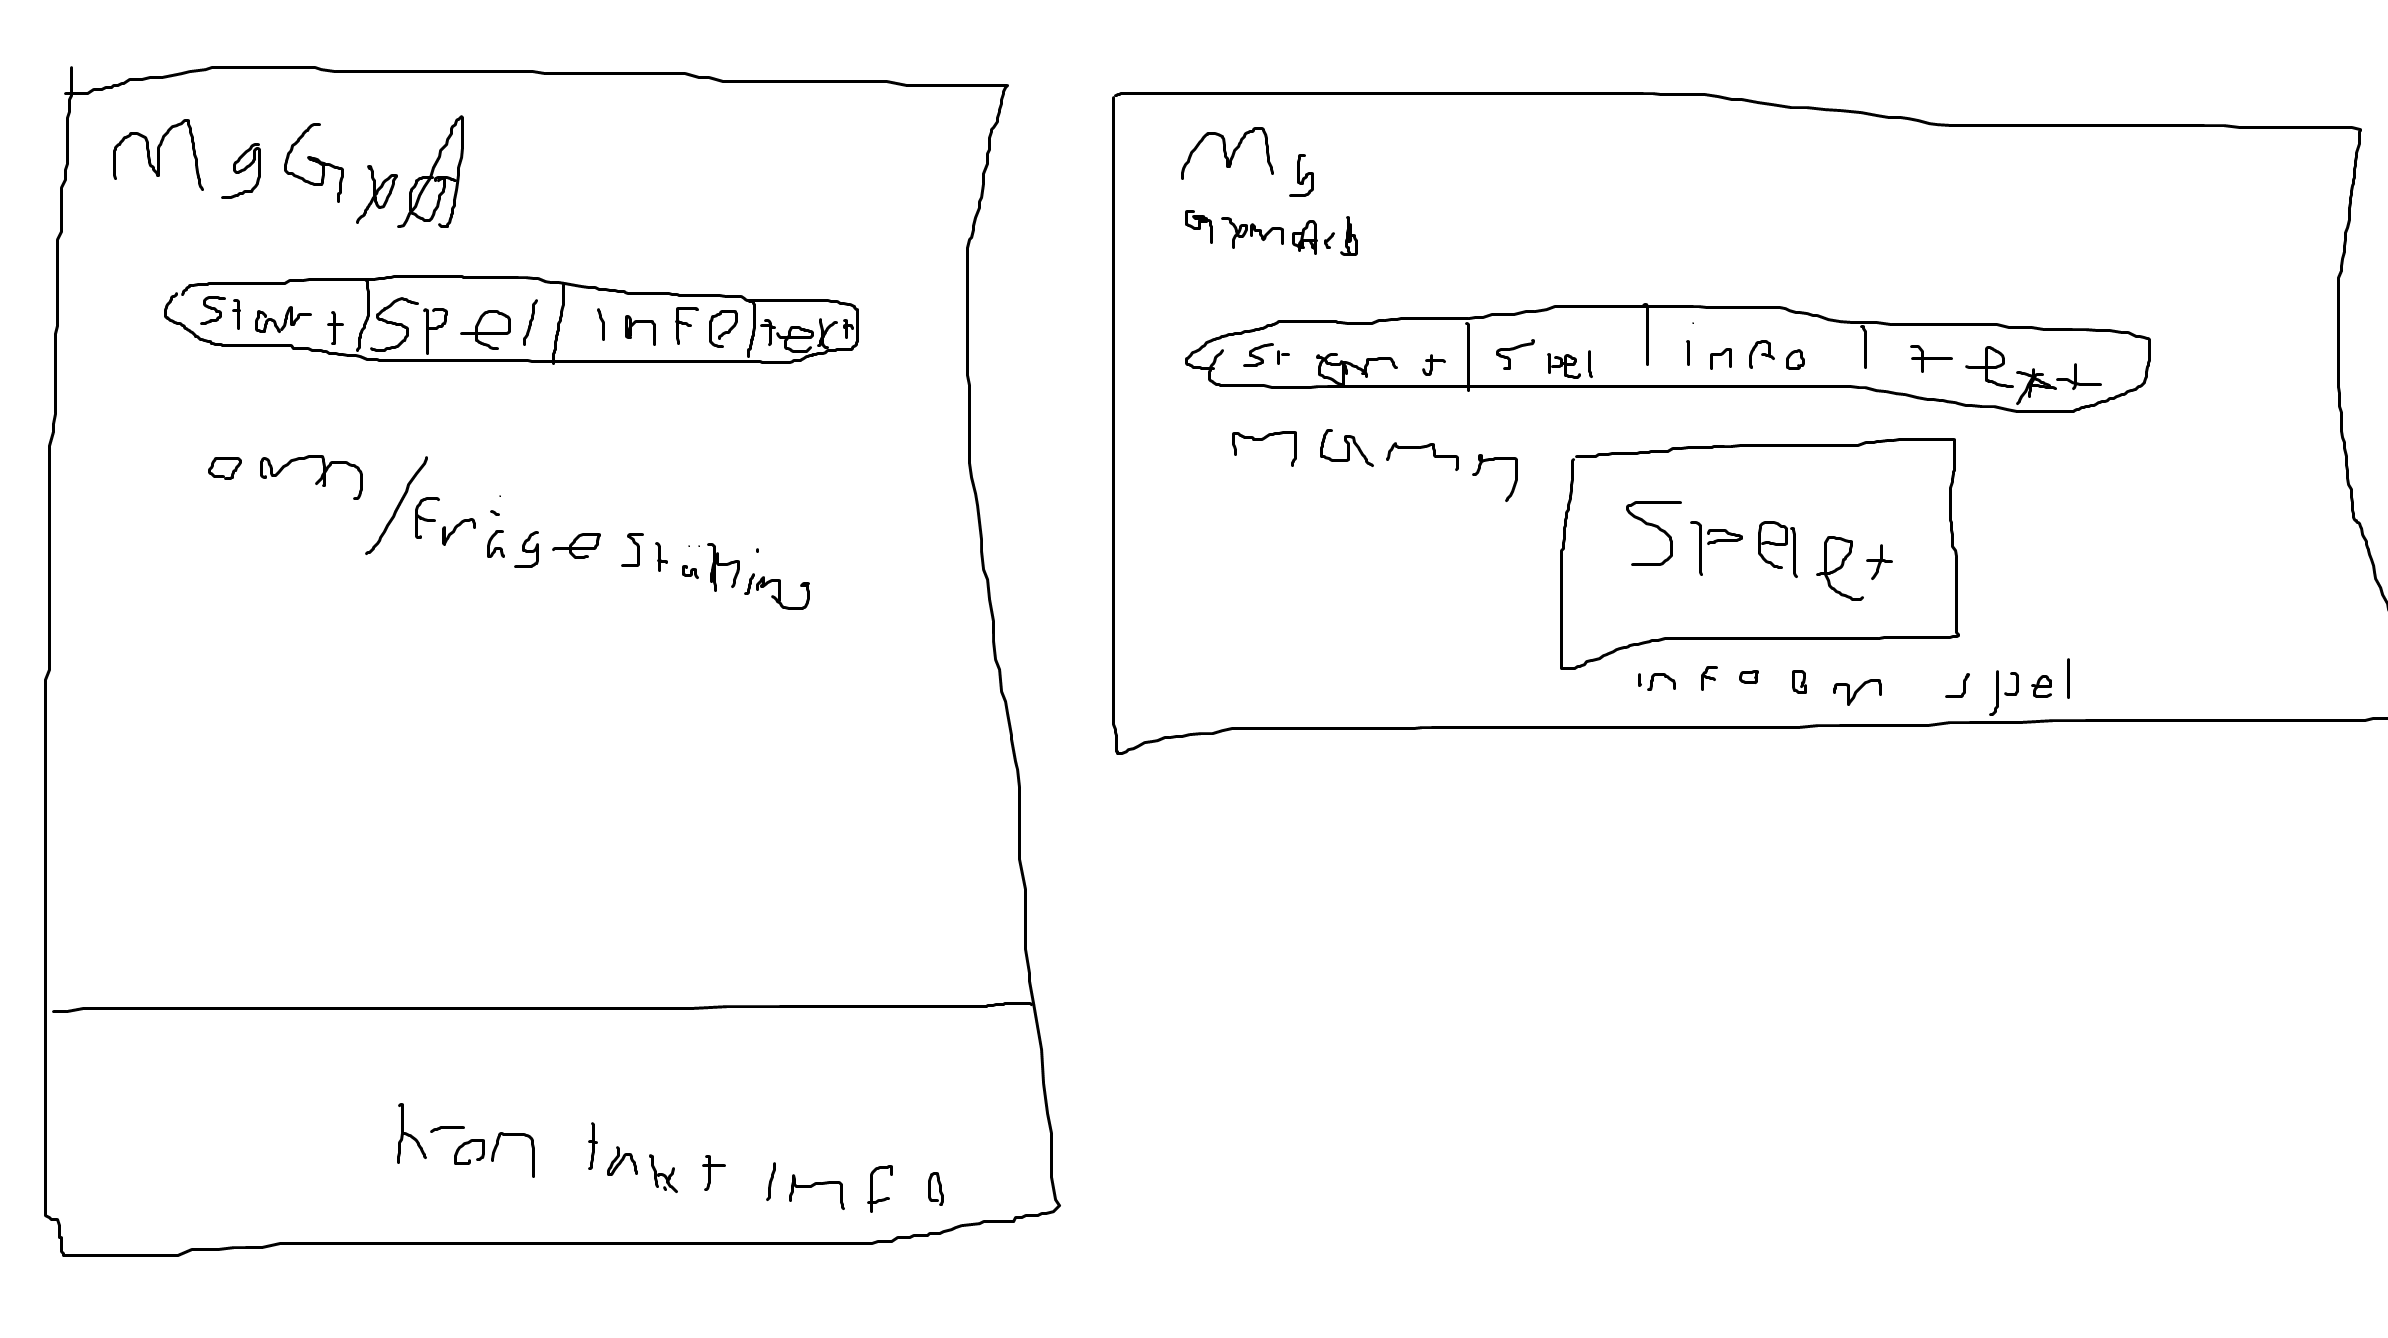 start Spel info text
om/Frågeställning
kontakt info
Mg
start Spel info text
namn
Spelet
info om spel